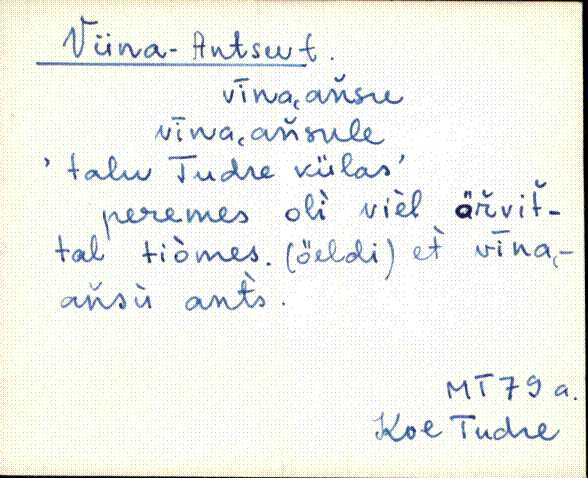 Viina-Antsut.
vīna͔añsu
vīna͔añsule
'talu Tudre külas'
peremes olì vièl ärvit̆-
tal tiòmes. (öeldi) et̀ vīna͔-
añsù ant̀s.
MT 79 a.
Koe Tudre